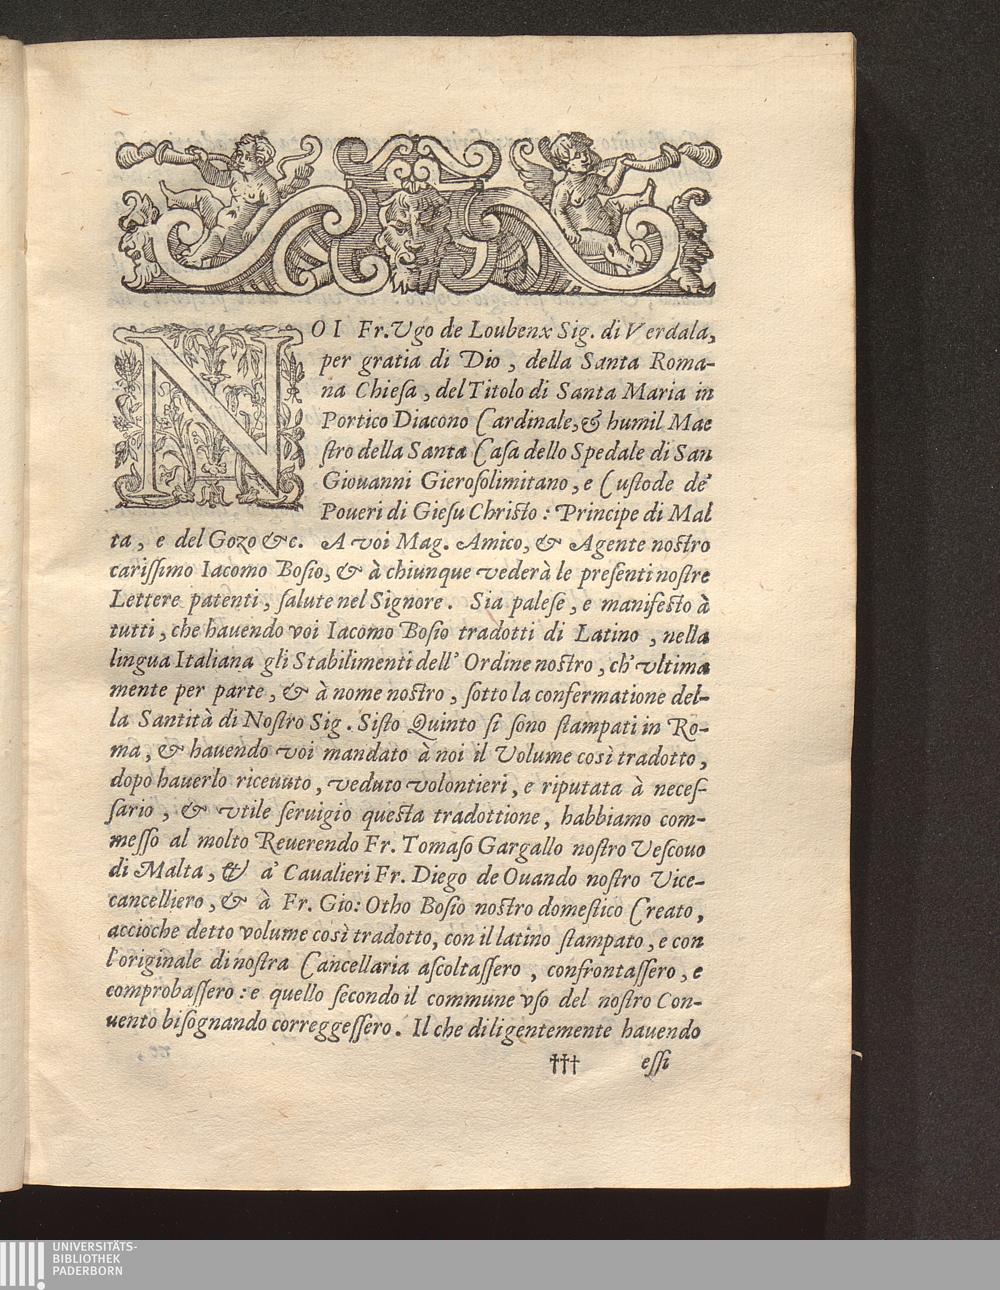 NOI Fr. Vgo de Loubenx Sig. di Verdala,
per gratia di Dio, della Santa Roma-
na Chieſa, del Titolo di Santa Maria in
Portico Diacono Cardinale, & humil Mae
ſtro della Santa Caſa dello Spedale di San
Giouanni Gieroſolimitano, e Cuſtode de'
Poueri di Gieſu Chriſto: Principe di Mal
ta, e del Gozo &c. A voi Mag. Amico, & Agente noſtro
cariſſimo Iacomo Boſio, & à chiunque vederà le preſenti noſtre
Lettere patenti, ſalute nel Signore. Sia paleſe, e manifeſto à
tutti, che hauendo voi Iacomo Boſio tradotti di Latino, nella
lingua Italiana gli Stabilimenti dell' Ordine noſtro, ch' vltima
mente per parte, & à nome noſtro, ſotto la confermatione del-
la Santità di Noſtro Sig. Siſto Quinto ſi ſono ſtampati in Ro-
ma, & hauendo voi mandato à noi il Volume così tradotto,
dopo hauerlo riceuuto, veduto volontieri, e riputata à neceſ-
ſario, & vtile ſeruigio queſta tradottione, habbiamo com-
meſſo al molto Reuerendo Fr. Tomaſo Gargallo noſtro Veſcouo
di Malta, & a' Caualieri Fr. Diego de Ouando noſtro Vice-
cancelliero, & à Fr. Gio: Otho Boſio noſtro domeſtico Creato,
accioche detto volume così tradotto, con il latino ſtampato, e con
l'originale di noſtra Cancellaria aſcoltaſſero, confrontaſſero, e
comprobaſſero: e quello ſecondo il commune vſo del noſtro Con-
uento biſognando correggeſſero. Il che diligentemente hauendo
††† eſſi
UNIVERSITÄTS-
BIBLIOTHEK
PADERBORN